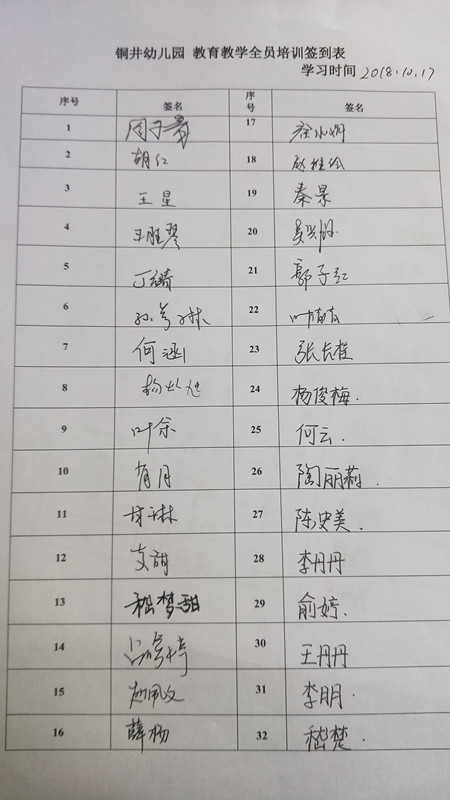 铜井幼儿园 教育教学全员培训签到表
学习时间 2018.10.17
序号 签名 序号 签名
1 周子 17 徐
2 胡红 18 赵桂
3 王星 19 秦景
4 王胜琴 20 吴
5 丁 21 郭子红
6 孙 22 叶
7 何涵 23 张长桂
8 杨 24 杨俊梅.
9 叶余 25 何云.
10 肖月 26 陶丽莉.
11 林 27 陈史美.
12 支甜 28 李丹丹
13 嵇梦甜 29 俞婷.
14 吕 30 王丹丹
15 赵佩文 31 李朋.
16 薛杨 32 嵇楚.